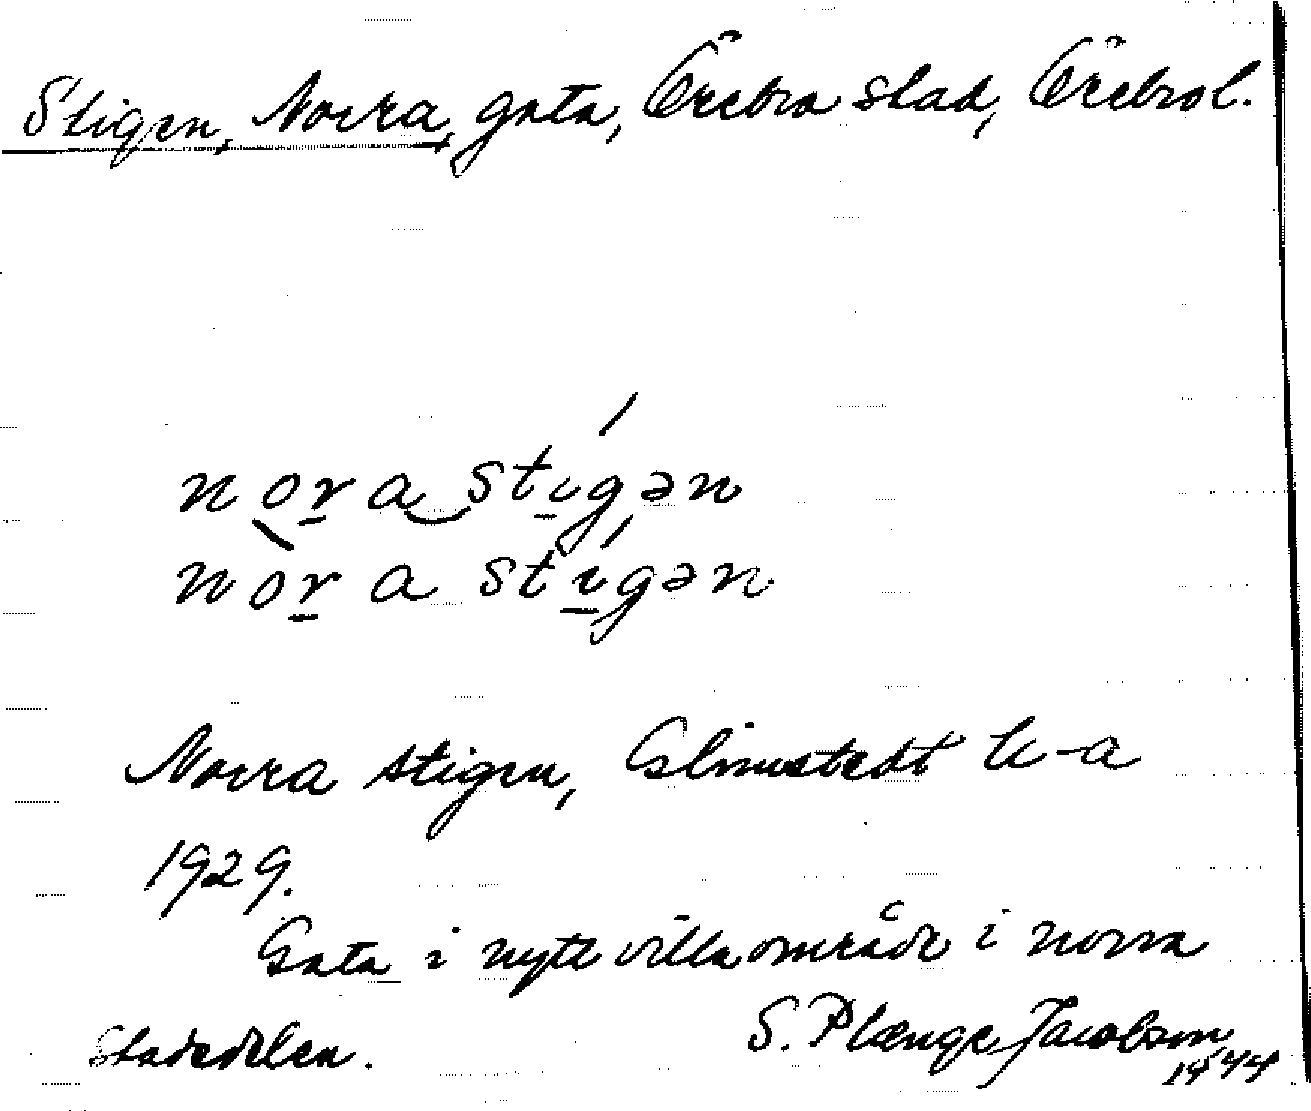 Stigen, Norra, gata, Örebro stad, Örebro l.
nora stigən
nora stigən
Norra stigen, Elmstedt k-a
1929.
Gata i nytt villaområde i norra
stadsdelen.
S. Plænge Jacobson
1944